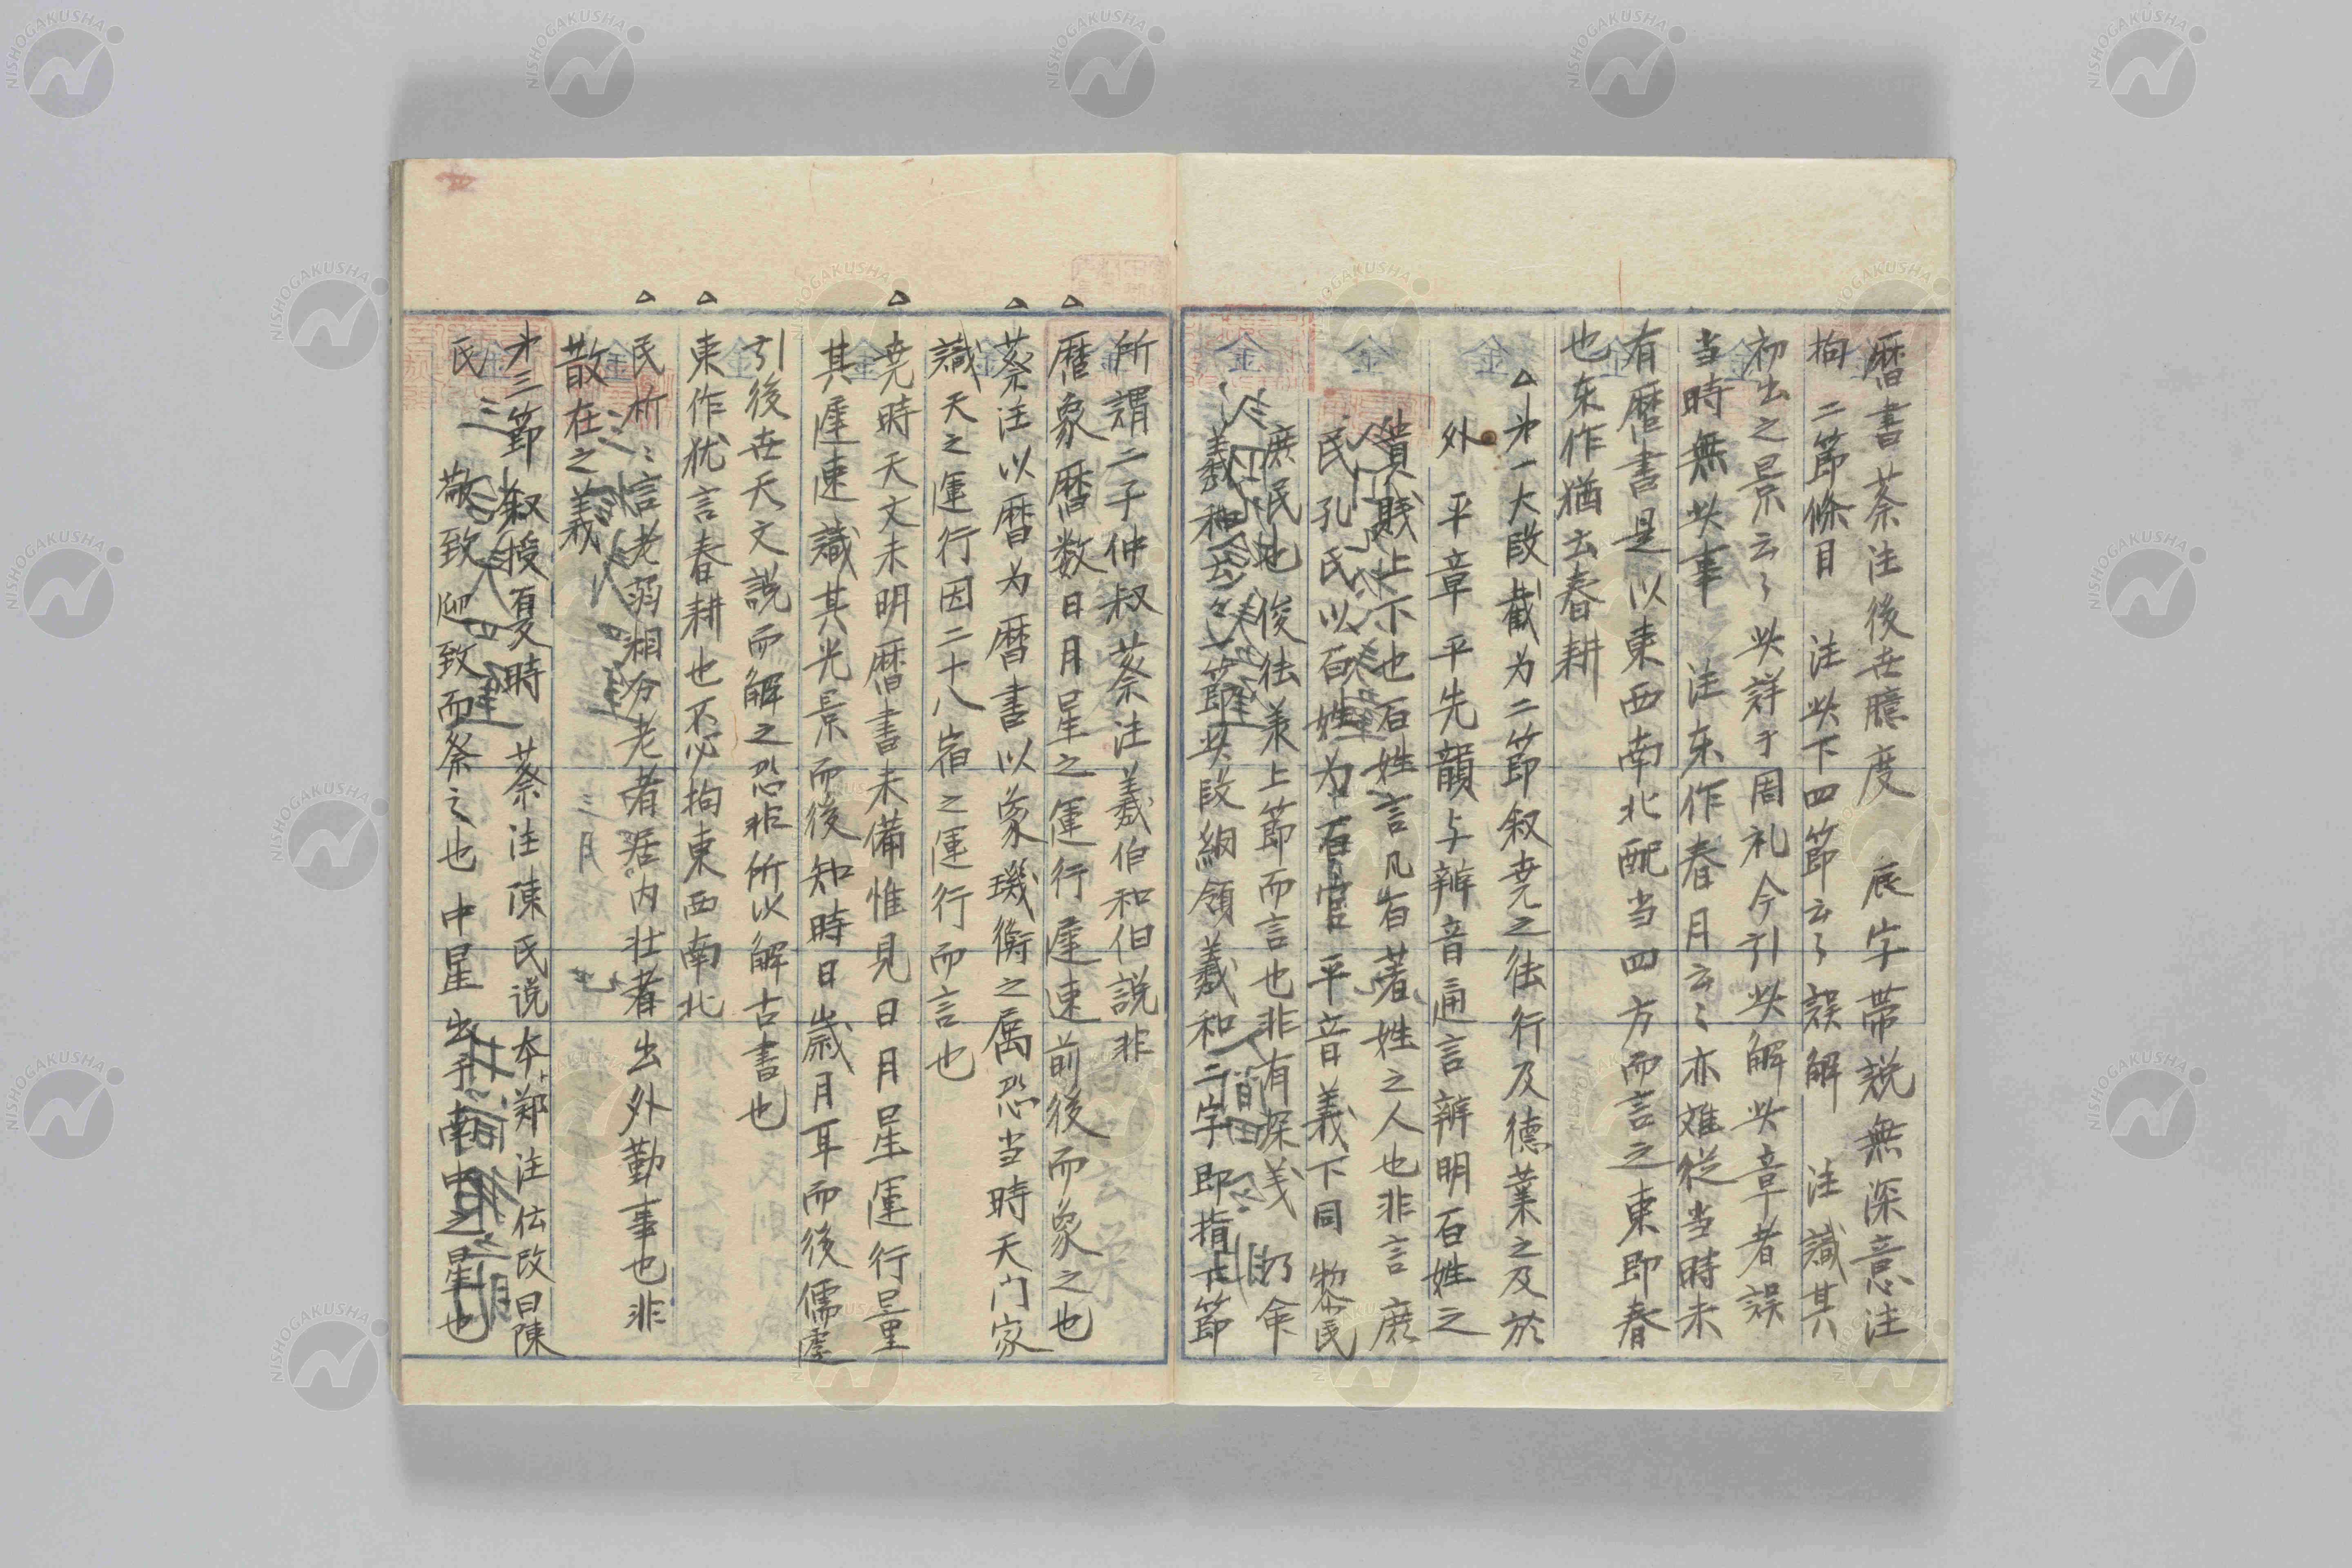 暦書蔡注後世臆度　辰字帯説無深意注
拘　二節條目　注此下四節云々誤解　注識其
初出之景云々此詳于周礼今引此解此章者誤
当時無此事　注东作春月云々亦难從当時未
有暦書是以東西南北配当四方而言之東即春
也东作猶去春耕
△才一大段截为二節叙尭之徃行及德業之及於
外　平章　平先韻与辨音通言辨明百姓之
貴賤上下也百姓言凡有著姓之人也非言庶
民孔氏以百姓为百官平音義下同　黎民
庶民也　俊徃美上節而言也非有深义　乃命
羲和云々二節此段綱領羲和二字即指下節
所謂二子仲叔蔡注羲伯和伯説非
△暦象暦数日月星之運行遅速前後而象之也
△蔡注以暦为暦書以象璣衡之属恐当時天门家
識天之運行因二十八宿之運行而言也
△尭時天文未明暦書未備惟見日月星運行量
其遅速識其光景而後知時日歳月耳而後儒虗
引後世天文説而解之恐非所以解古書也
△東作犹言春耕也不必拘東西南北
△民析々言老弱相分老者居内壮者出外勤事也非
散在之義
才三節叙授夏時　蔡注陳氏说本郑注伝改曰陳
氏　敬致　迎致而祭之也　中星　出乎南中之星也